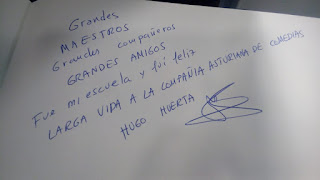 Grandes
MAESTROS
Grandes compañeros
GRANDES AMIGOS
Fue mi escuela y fui feliz
LARGA VIDA A LA COMPAÑIA ASTURIANA DE COMEDIAS
HUGO HUERTA